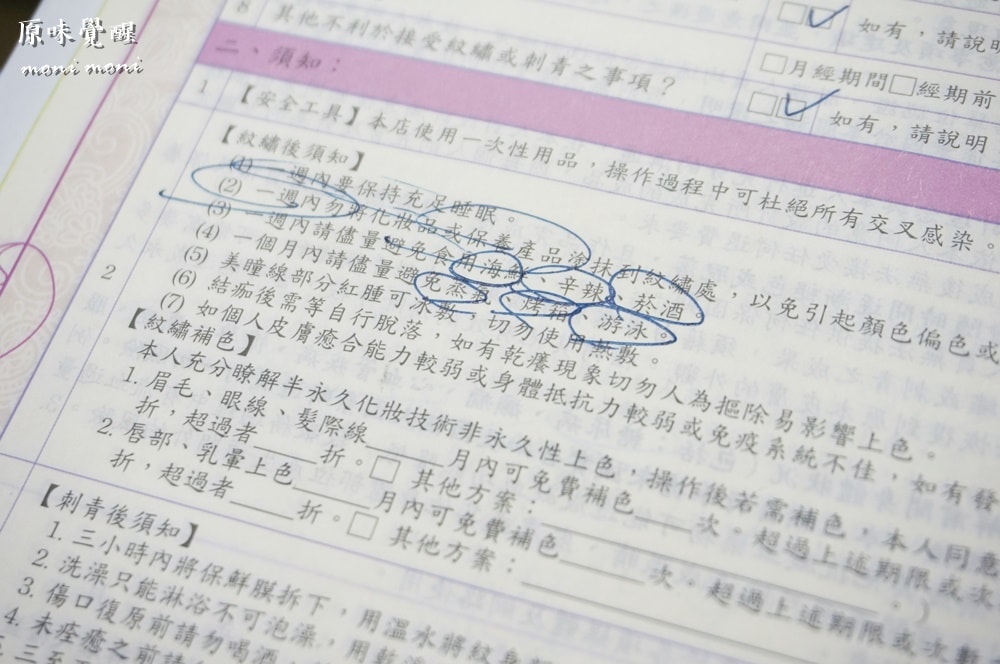 原味覺醒
moni moni
8 其他不利於接受紋繡或刺青之事項？
如有，請說明
二、須知：
□月經期間□經期前
如有，請說明
1 【安全工具】本店使用一次性用品，操作過程中可杜絕所有交叉感染。
2
【紋繡後須知】
(1) 一週內要保持充足睡眠。
(2) 一週內勿將化妝品或保養產品塗抹到紋繡處，以免引起顏色偏色或
(3) 一週內請儘量避免食用海鮮、辛辣、菸酒。
(4) 一個月內請儘量避免蒸氣、烤箱、游泳。
(5) 美瞳線部分紅腫可冰敷，切勿使用熱敷。
(6) 結痂後需等自行脫落，如有乾癢現象切勿人為摳除易影響上色。
(7) 如個人皮膚癒合能力較弱或身體抵抗力較弱或免疫系統不佳，如有發
【紋繡補色】
本人充分瞭解半永久化妝技術非永久性上色，操作後若需補色，本人同意
1. 眉毛、眼線、髮際線____月內可免費補色____次。超過上述期限或次
折，超過者____折。□ 其他方案：____________。）
2. 唇部、乳暈上色____月內可免費補色____次。超過上述期限或次數
折，超過者____折。□ 其他方案：____________
【刺青後須知】
1. 三小時內將保鮮膜拆下，用溫水將紋身
2. 洗澡只能淋浴不可泡澡，用乾
3. 傷口復原前請勿喝酒
4. 未痊癒之前請